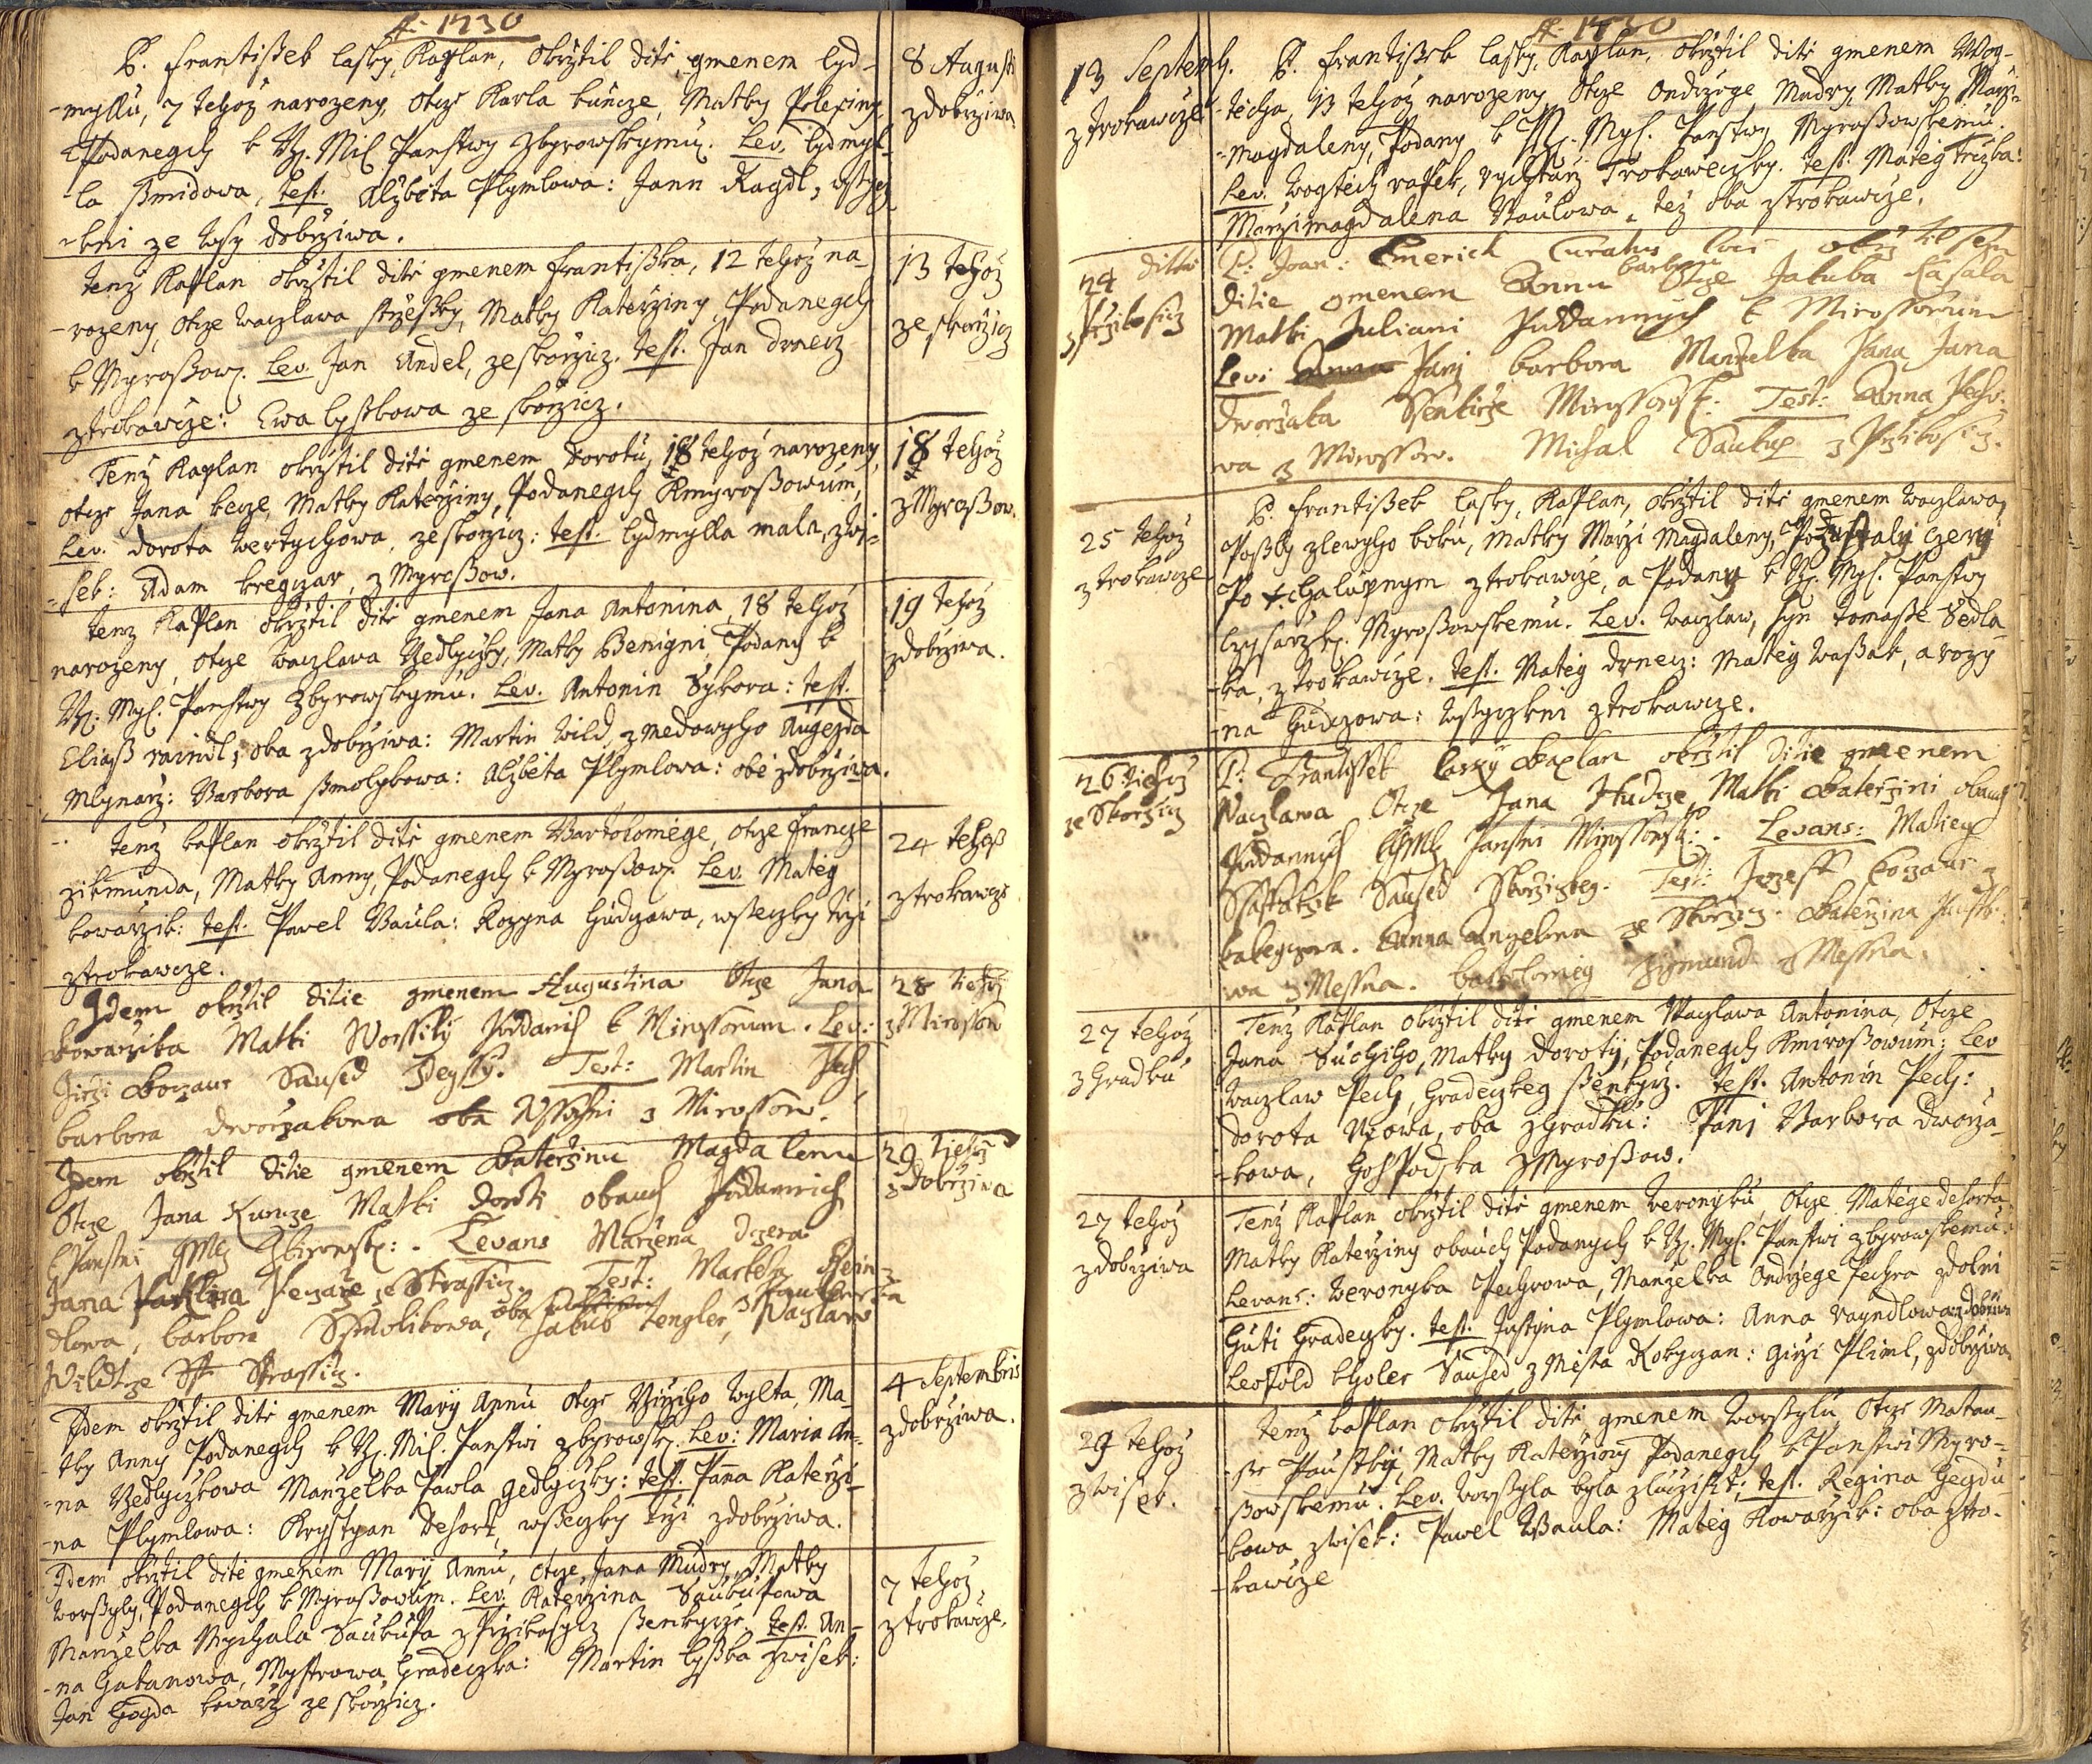 A. 1730
P. Frantißek Lasky, Kaplan, okrżtil dite gmenem Lyd-
-myllu, 7 tehoż narozeny, otcze Karla kuncze, Matky Polexiny
Podanegch k Mil Panstwy Zbyrowskymu. Lev. Lydmyl-
-la ßmidowa, test. Alżbeta Plymlowa: Jann Ragdl, wßycz-
-kni ze wsy dobrziwa.
8 Augusti
z dobrziwa
Tenż Kaplan okrżtil dite gmenem Frantißka, 12 tehoż na-
-rozeny, otcze Waczlawa Matky Katerziny, Podanegch
k Myroßow. Lev. Jan Andel, ze skorzicz. test. Jan drnecz
z trokawcze: Ewa Lyßkowa ze skorzicz.
13 tehoż
ze skorzicz
Tenż Kaplan okrżtil dite gmenem Dorotu, 18 tehoż narozeny,
otcze Jana kecze, Matky Katerziny, Podanegch K myroßowum,
Lev. Dorota Wertychowa, ze skorzicz: test. Lydmylla mala, z wi-
-sek: Adam kregczar, z Myroßow.
18 tehoż
z Myroßow.
Tenż Kaplan okrżtil dite gmenem Jana Antonina, 18 tehoż
narozeny, otcze Waczlawa Yedlyczky, Matky Benigni, Podany k
Myl. Panstwy Zbyrowskymu. Lev. Antonin Sykora: test.
Eliaß raindl, oba z dobrziwa: Martin Wild z medowyho Augezda
Mlynarz: Barbora ßmolykowa: Alżbeta Plymlowa: obe z dobrziwa.
19 tehoż
z dobrziwa.
Tenż kaplan okrżtil dite gmenem Bartolomege, otcze Francze
zikmunda, Matky Anny, Podanegch k Myroßow. Lev. Mateg
kowarzik: test. Pawel Baula: Rozyna Hudczowa, wßeczky trzi
z trokawcze.
24 tehoż
z trokawcze
Idem okrztil ditie gmenem Augustina Otcze Jana
Kowarzika Matki Worssily Poddanich k Mirossowum. Lev:
Girzi Koczaur Saused Zdeyssy. Test: Martin Pech,
Barbora dworzakowa oba z Mirossow.
28 tiehoż
z Mirossow
Idem okrztil ditie gmenem Katerzinu Magdalenu
Otcze Jana Kuncze Matki Doroti obauch Poddanich
k Panstwi Zbirowsk: Levans Mariena Dczera
Jana Pekarze ze Strassicz. Test: Marketa
dlowa, Barbora Ssmolikowa, oba Jakub Tengler, Waczlaw
Wildt ze Strassicz.
29 tiehoż
z Dobrziwa
Idem okrżtil dite gmenem Mary Annu otcze Wylta, Ma-
-tky Anny Podanegch k Mil. Panstwi zbyrowsk. Lev: Maria An-
-na Yedlyczkowa Manżelka Pawla gedlyczky: test. Panna Katerzi-
-na Plymlowa: Krystyan Desort, wßeczky trzi z dobrziwa.
4 Septembris
z dobrziwa.
Idem okrżtil dite gmenem Mary Annu, otcze Jana Mudry, Matky
Worßyly, Podanegch k Myroßowum. Lev. Katerzina Saukupowa
Manżelka Mychala Saukupa z Przikosycz ßenkyrze. test. An-
-na Gatanowa, Mystrowa Hradeczka: Martin Lyßka z wisek:
Jan Hogda kowarz ze skorzicz.
7 tehoż
z trokawcze.
A. 1730
13 Septemb.
z trokawcze
P. Frantißek Lasky, Kaplan, okrżtil dite gmenem Wog-
-techa, 13 tehoż narozeny, otcze Ondrzege Mudry, Matky Marzi
-Magdaleny, Podany k Myl. Panstwy Myroßowskemu.
Lev. Wogtech raßek, rychtarz Trokaweczky. test. Mateg trczka:
Marzimagdalena Baulowa, też oba z trokawcze.
24 ditto
z Przikosicz
P: Joan: Emerich Curatus loci okrżtil sem
ditie gmenem Annu Barboru Otcze Jakuba Casala
Matki Juliani Poddannych k Mirossowum
Lev: Pani Barbora Manżelka Pana Jana
Dworzaka Ssenkirze Mirossowsk: Test: Anna Pecho-
wa z Mirossow. Michal Saukup z Przikosicz.
25 tehoż
z trokawcze
P. Frantißek Lasky, Kaplan, okrżtil dite gmenem Waczlawa,
Poßly z lewyho boku, Matky Marzi Magdaleny, Pozustaly czery
Po † Chalupnym z trokawcze, a Podany k Myl. Panstwy
Czysarzsk. Myroßowskemu. Lev. Waczlaw, syn Tomaße Sedla-
-ka, z trokawcze. test. Mateg drnecz: Mateg waßak, a rozy
-na Hudczowa: wßyczkni z trokawcze.
26 tiehoż
ze Skorzicz
P: Frantissek Lasky Kaplan okrżtil ditie gmenem
Waczlawa Otcze Jana Hudcze Matki Katerzini obauch
Poddannych Panstwi Mirossowsk: Levans: Matieg
Saused Skorziczkeg. Test: Jozeff Koczaur z
kakegczowa. Anna Angelowa ze Skorzicz. Katerzina
wa z Messna. Bartolomeg Zigmund z Messna.
27 tehoż
z Hradku
Tenż Kaplan okrżtil dite gmenem Waczlawa Antonina, otcze
Jana Suchyho, Matky Doroty, Podanegch K miroßowum: Lev
Waczlaw Pech, Hradeczkeg ßenkyrz. test. Antonin Pech:
Dorota oba z Hradku: Pani Barbora Dworza-
-kowa, Hospodska z Myroßow.
27 tehoż
z dobrziwa
Tenż Kaplan okrżtil dite gmenem Weronyku, otcze Matege Desorta
Matky Katerziny obauch Podanych k Myl. Panstwi zbyrowskemu:
Levans: Weronyka Pechrowa, Manżelka Ondrzege Pechra z dolni
Huti Hradeczky. test. Justyna Plymlowa: Anna Rayndlowa z dobrziwa
Leopold Choler Saused z Mesta Rokyczan: Girzi Pliml, z dobrziwa
29 tehoż
z wisek.
Tenż kaplan okrżtil dite gmenem Worßylu, otcze Matau-
-sse Paustky, Matky Katerziny Podanegch k Panstwi Myro-
ßowskemu. Lev. Worßyla byla test. Regina Hegdu-
-kowa z wisek: Pawel Baula: Mateg Kowarzik: oba z tro-
-kawcze